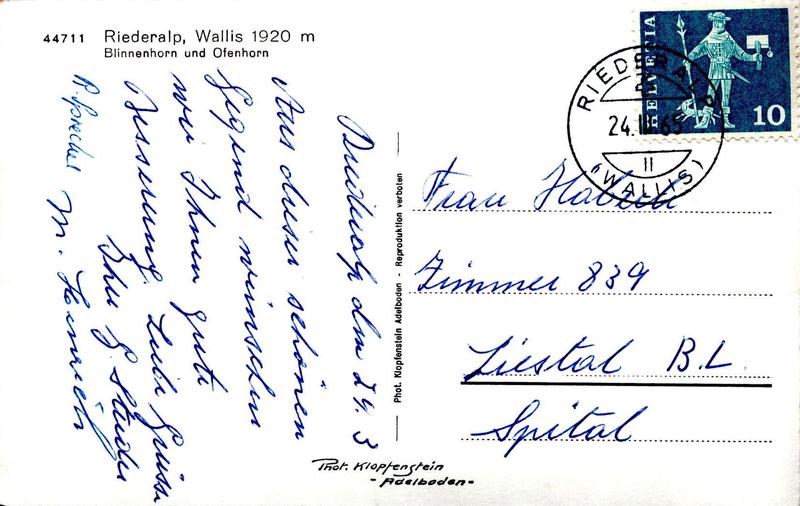 44711 Riederalp, Wallis 1920 m
Blinnenhorn und Ofenhorn
Riederalp den 24. 3
Aus dieser schönen
Gegend wünschen
wir Ihnen gute
Besserung. Liebe Grüsse
Ihre G. Studer
M. Heinrich
R. Sprecher
Phot. Klopfenstein Adelboden - Reproduktion verboten
HELVETIA
10
RIEDERALP
24. III. 65
II
(WALLIS)
Frau
Zimmer 839
Liestal B.L.
Spital
Phot. Klopfenstein
- Adelboden -